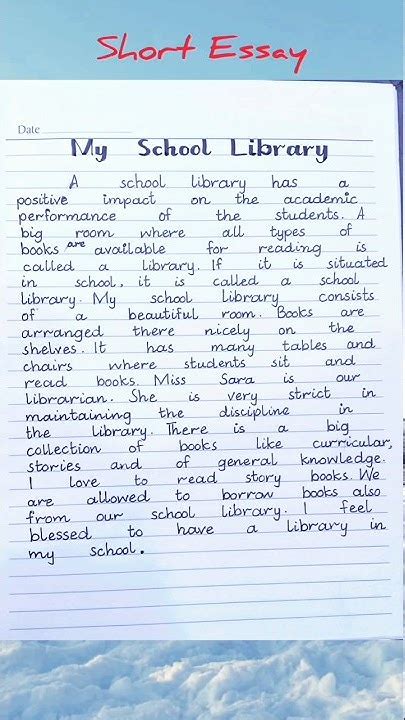 Short Essay
Date
My School Library
A school library has a
positive impact on the academic
performance of the students. A
big room where all types of
books are available for reading is
called a library. If it is situated
in school, it is called a school
library. My school library consists
of a beautiful room. Books are
arranged there nicely on the
shelves. It has many tables and
chairs where students sit and
read books. Miss Sara is our
librarian. She is very strict in
maintaining the discipline in
the library. There is a big
collection of books like curricular,
stories and of general knowledge.
I love to read story books. We
are allowed to borrow books also
from our school library. I feel
blessed to have a library in
my school.